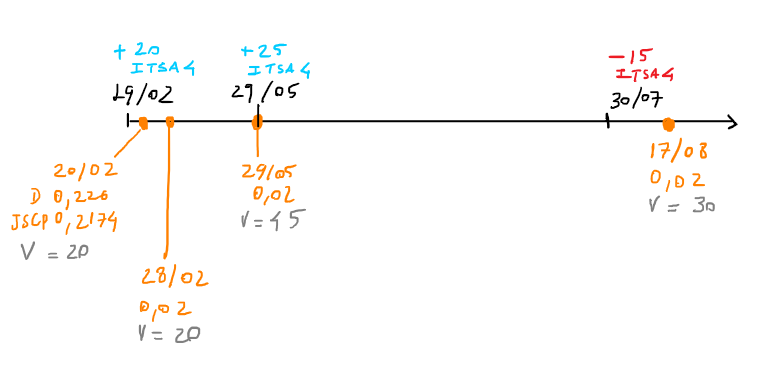 +20
ITSA4
19/02
+25
ITSA4
29/05
-15
ITSA4
30/07
20/02
D 0,226
JSCP 0,2174
V = 20
28/02
0,02
V = 20
29/05
0,02
V = 45
17/08
0,02
V = 30